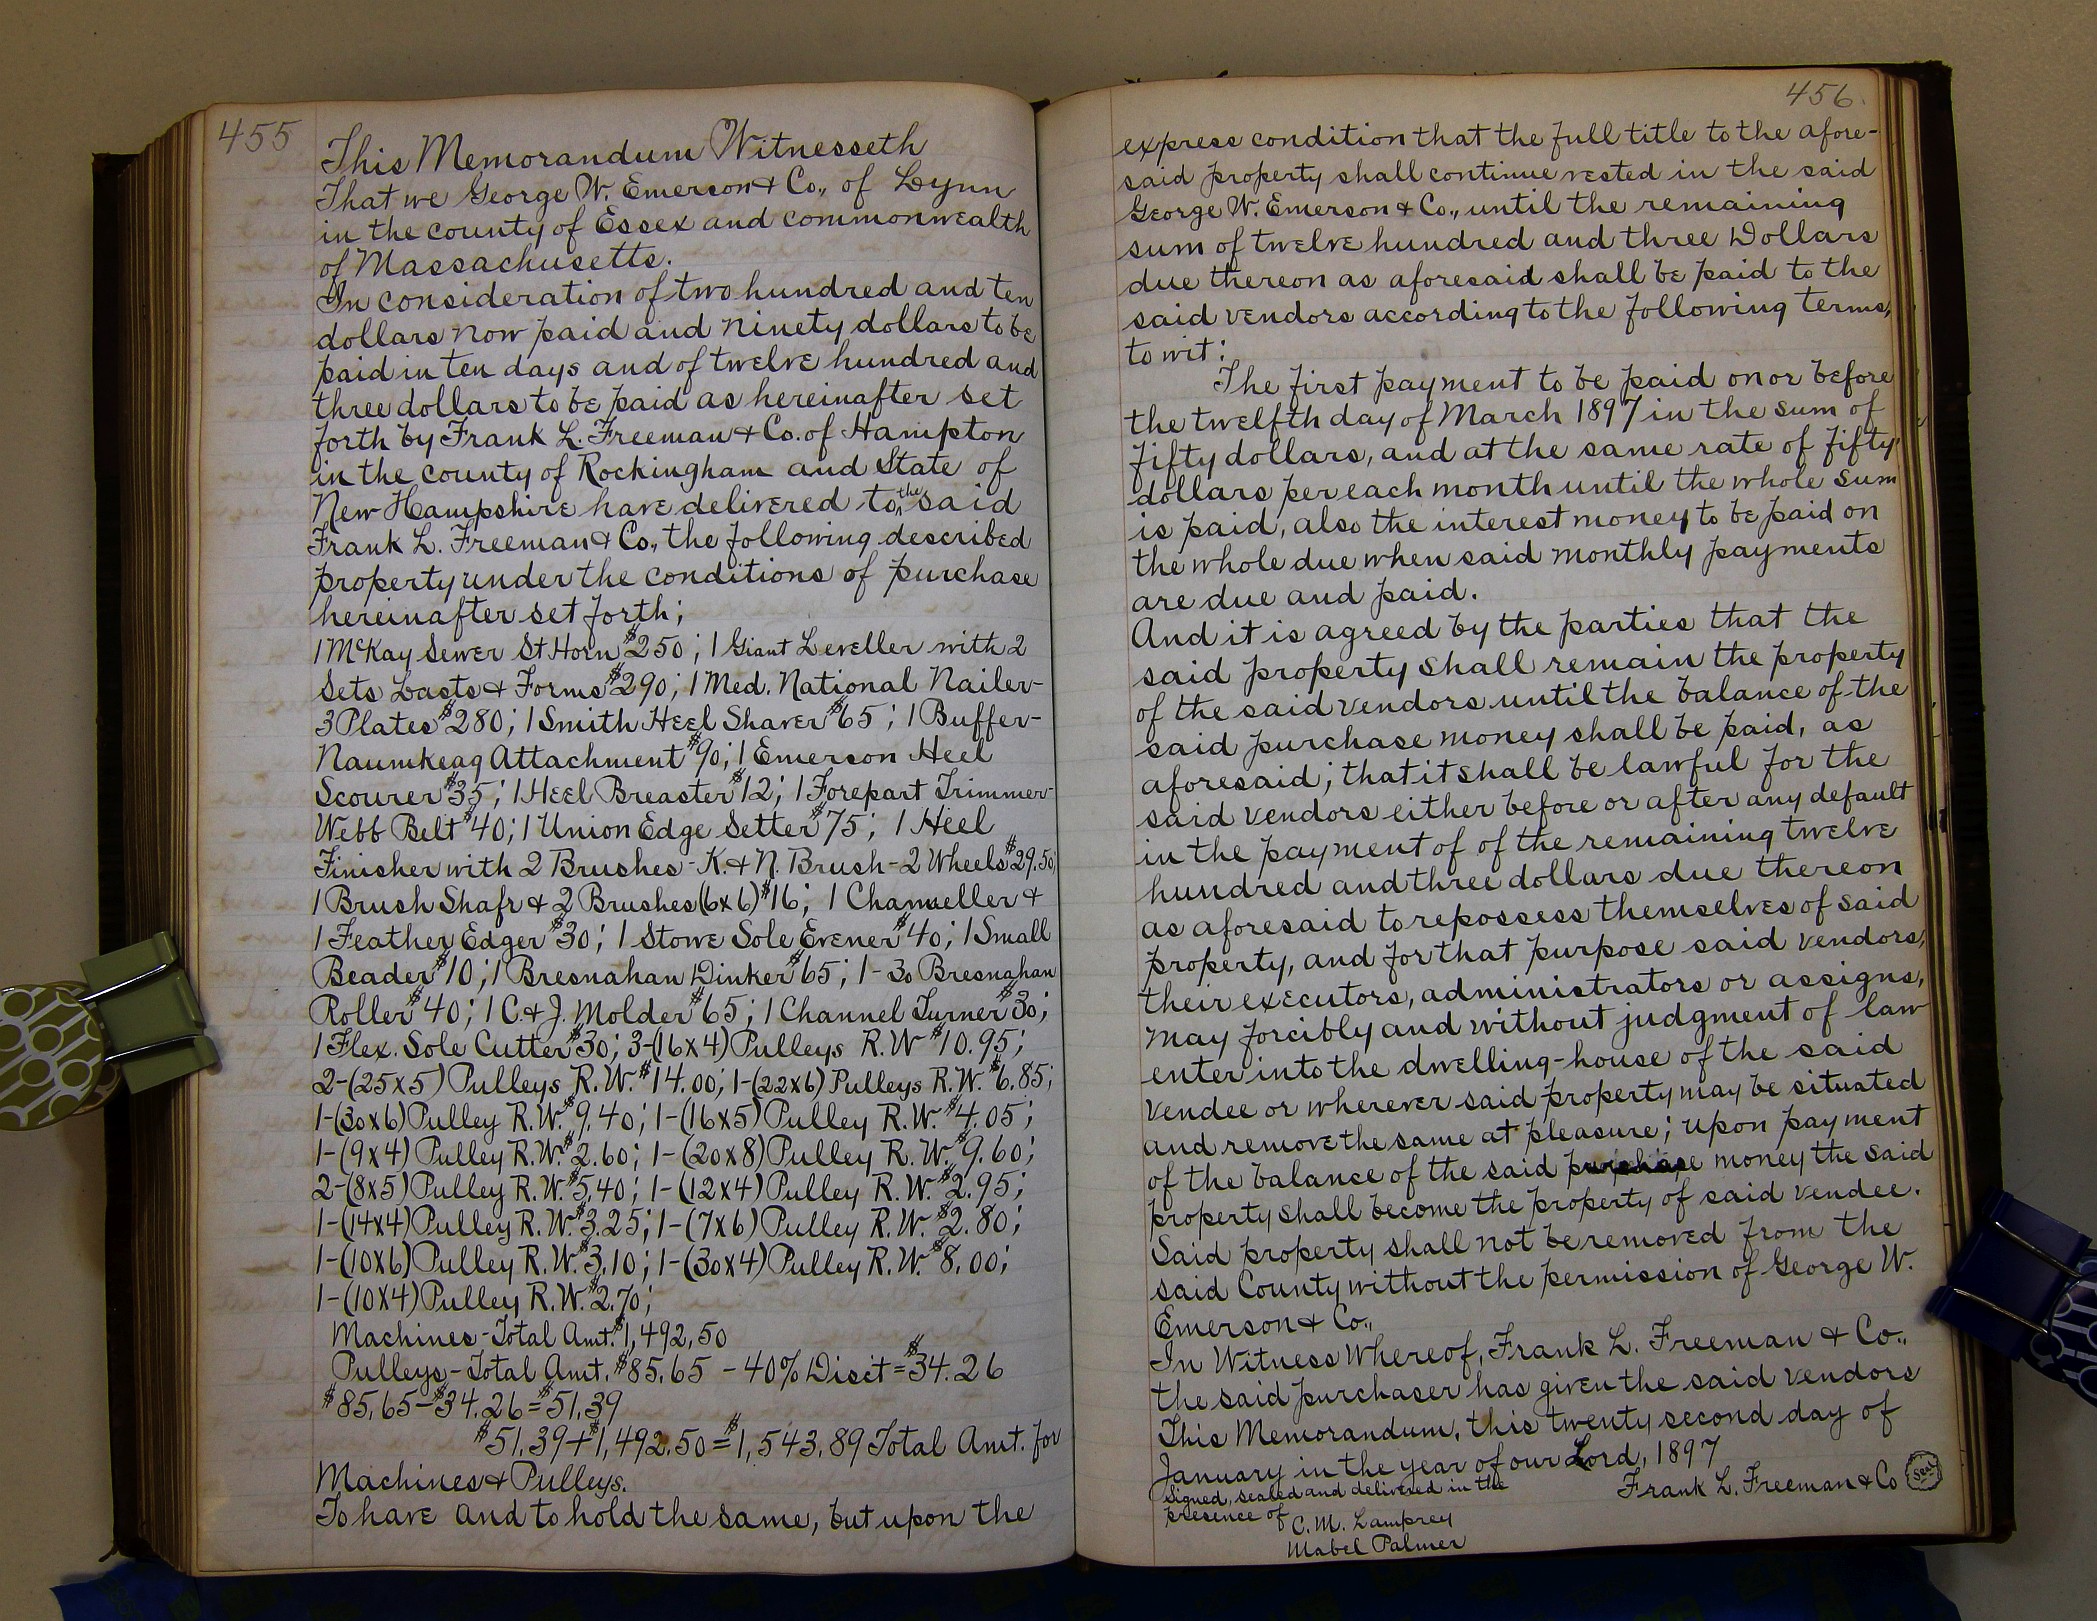 455
This Memorandum Witnesseth
That we George W. Emerson & Co., of Lynn
in the county of Essex and commonwealth
of Massachusetts.
In consideration of two hundred and ten
dollars now paid and ninety dollars to be
paid in ten days and of twelve hundred and
three dollars to be paid as hereinafter set
forth by Frank L. Freeman & Co. of Hampton
in the county of Rockingham and State of
New Hampshire have delivered to the said
Frank L. Freeman & Co., the following described
property under the conditions of purchase
hereinafter set forth;
1 McKay Sewer St Horn $250; 1 Giant Leveller with 2
Sets Lasts & Forms $290; 1 Med. National Nailer-
3 Plates $280; 1 Smith Heel Shaver $65; 1 Buffer-
Naumkeag Attachment $90; 1 Emerson Heel
Scourer $35; 1 Heel Breaster $12; 1 Forepart Trimmer-
Webb Belt $40; 1 Union Edge Setter $75; 1 Heel
Finisher with 2 Brushes - K. & N. Brush - 2 Wheels $29.50;
1 Brush Shaft & 2 Brushes (6x6) $16; 1 Channeller &
1 Feather Edger $30; 1 Stowe Sole Evener $40; 1 Small
Beader $10; 1 Bresnahan Dinker $65; 1-30 Bresnahan
Roller $40; 1 C. & J. Molder $65; 1 Channel Turner $30;
1 Flex. Sole Cutter $30; 3-(16x4) Pulleys R.W $10.95;
2-(25x5) Pulleys R.W. $14.00; 1-(22x6) Pulleys R.W. $6.85;
1-(30x6) Pulley R.W. $9.40; 1-(16x5) Pulley R.W. $4.05;
1-(9x4) Pulley R.W. $2.60; 1-(20x8) Pulley R.W. $9.60;
2-(8x5) Pulley R.W. $5.40; 1-(12x4) Pulley R.W. $2.95;
1-(14x4) Pulley R.W. $3.25; 1-(7x6) Pulley R.W. $2.80;
1-(10x6) Pulley R.W. $3.10; 1-(30x4) Pulley R.W. $8.00;
1-(10x4) Pulley R.W. $2.70;
Machines - Total Amt. $1,492.50
Pulleys - Total Amt. $85.65 - 40% Disct = $34.26
$85.65 - $34.26 = $51.39
$51.39 + $1,492.50 = $1,543.89 Total Amt. for
Machines & Pulleys.
To have and to hold the same, but upon the
456.
express condition that the full title to the afore-
said property shall continue vested in the said
George W. Emerson & Co., until the remaining
sum of twelve hundred and three Dollars
due thereon as aforesaid shall be paid to the
said vendors according to the following terms,
to wit:
The first payment to be paid on or before
the twelfth day of March 1897 in the sum of
fifty dollars, and at the same rate of fifty
dollars per each month until the whole sum
is paid, also the interest money to be paid on
the whole due when said monthly payments
are due and paid.
And it is agreed by the parties that the
said property shall remain the property
of the said vendors until the balance of the
said purchase money shall be paid, as
aforesaid; that it shall be lawful for the
said vendors either before or after any default
in the payment of of the remaining twelve
hundred and three dollars due thereon
as aforesaid to repossess themselves of said
property, and for that purpose said vendors,
their executors, administrators or assigns,
may forcibly and without judgment of law
enter into the dwelling-house of the said
vendee or wherever said property may be situated
and remove the same at pleasure; upon payment
of the balance of the said purchase money the said
property shall become the property of said vendee.
Said property shall not be removed from the
said County without the permission of George W.
Emerson & Co.,
In Witness Whereof, Frank L. Freeman & Co.,
the said purchaser has given the said vendors
This Memorandum, this twenty second day of
January in the year of our Lord, 1897
Signed, sealed and delivered in the
Frank L. Freeman & Co Seal
presence of C. M. Lamprey
Mabel Palmer